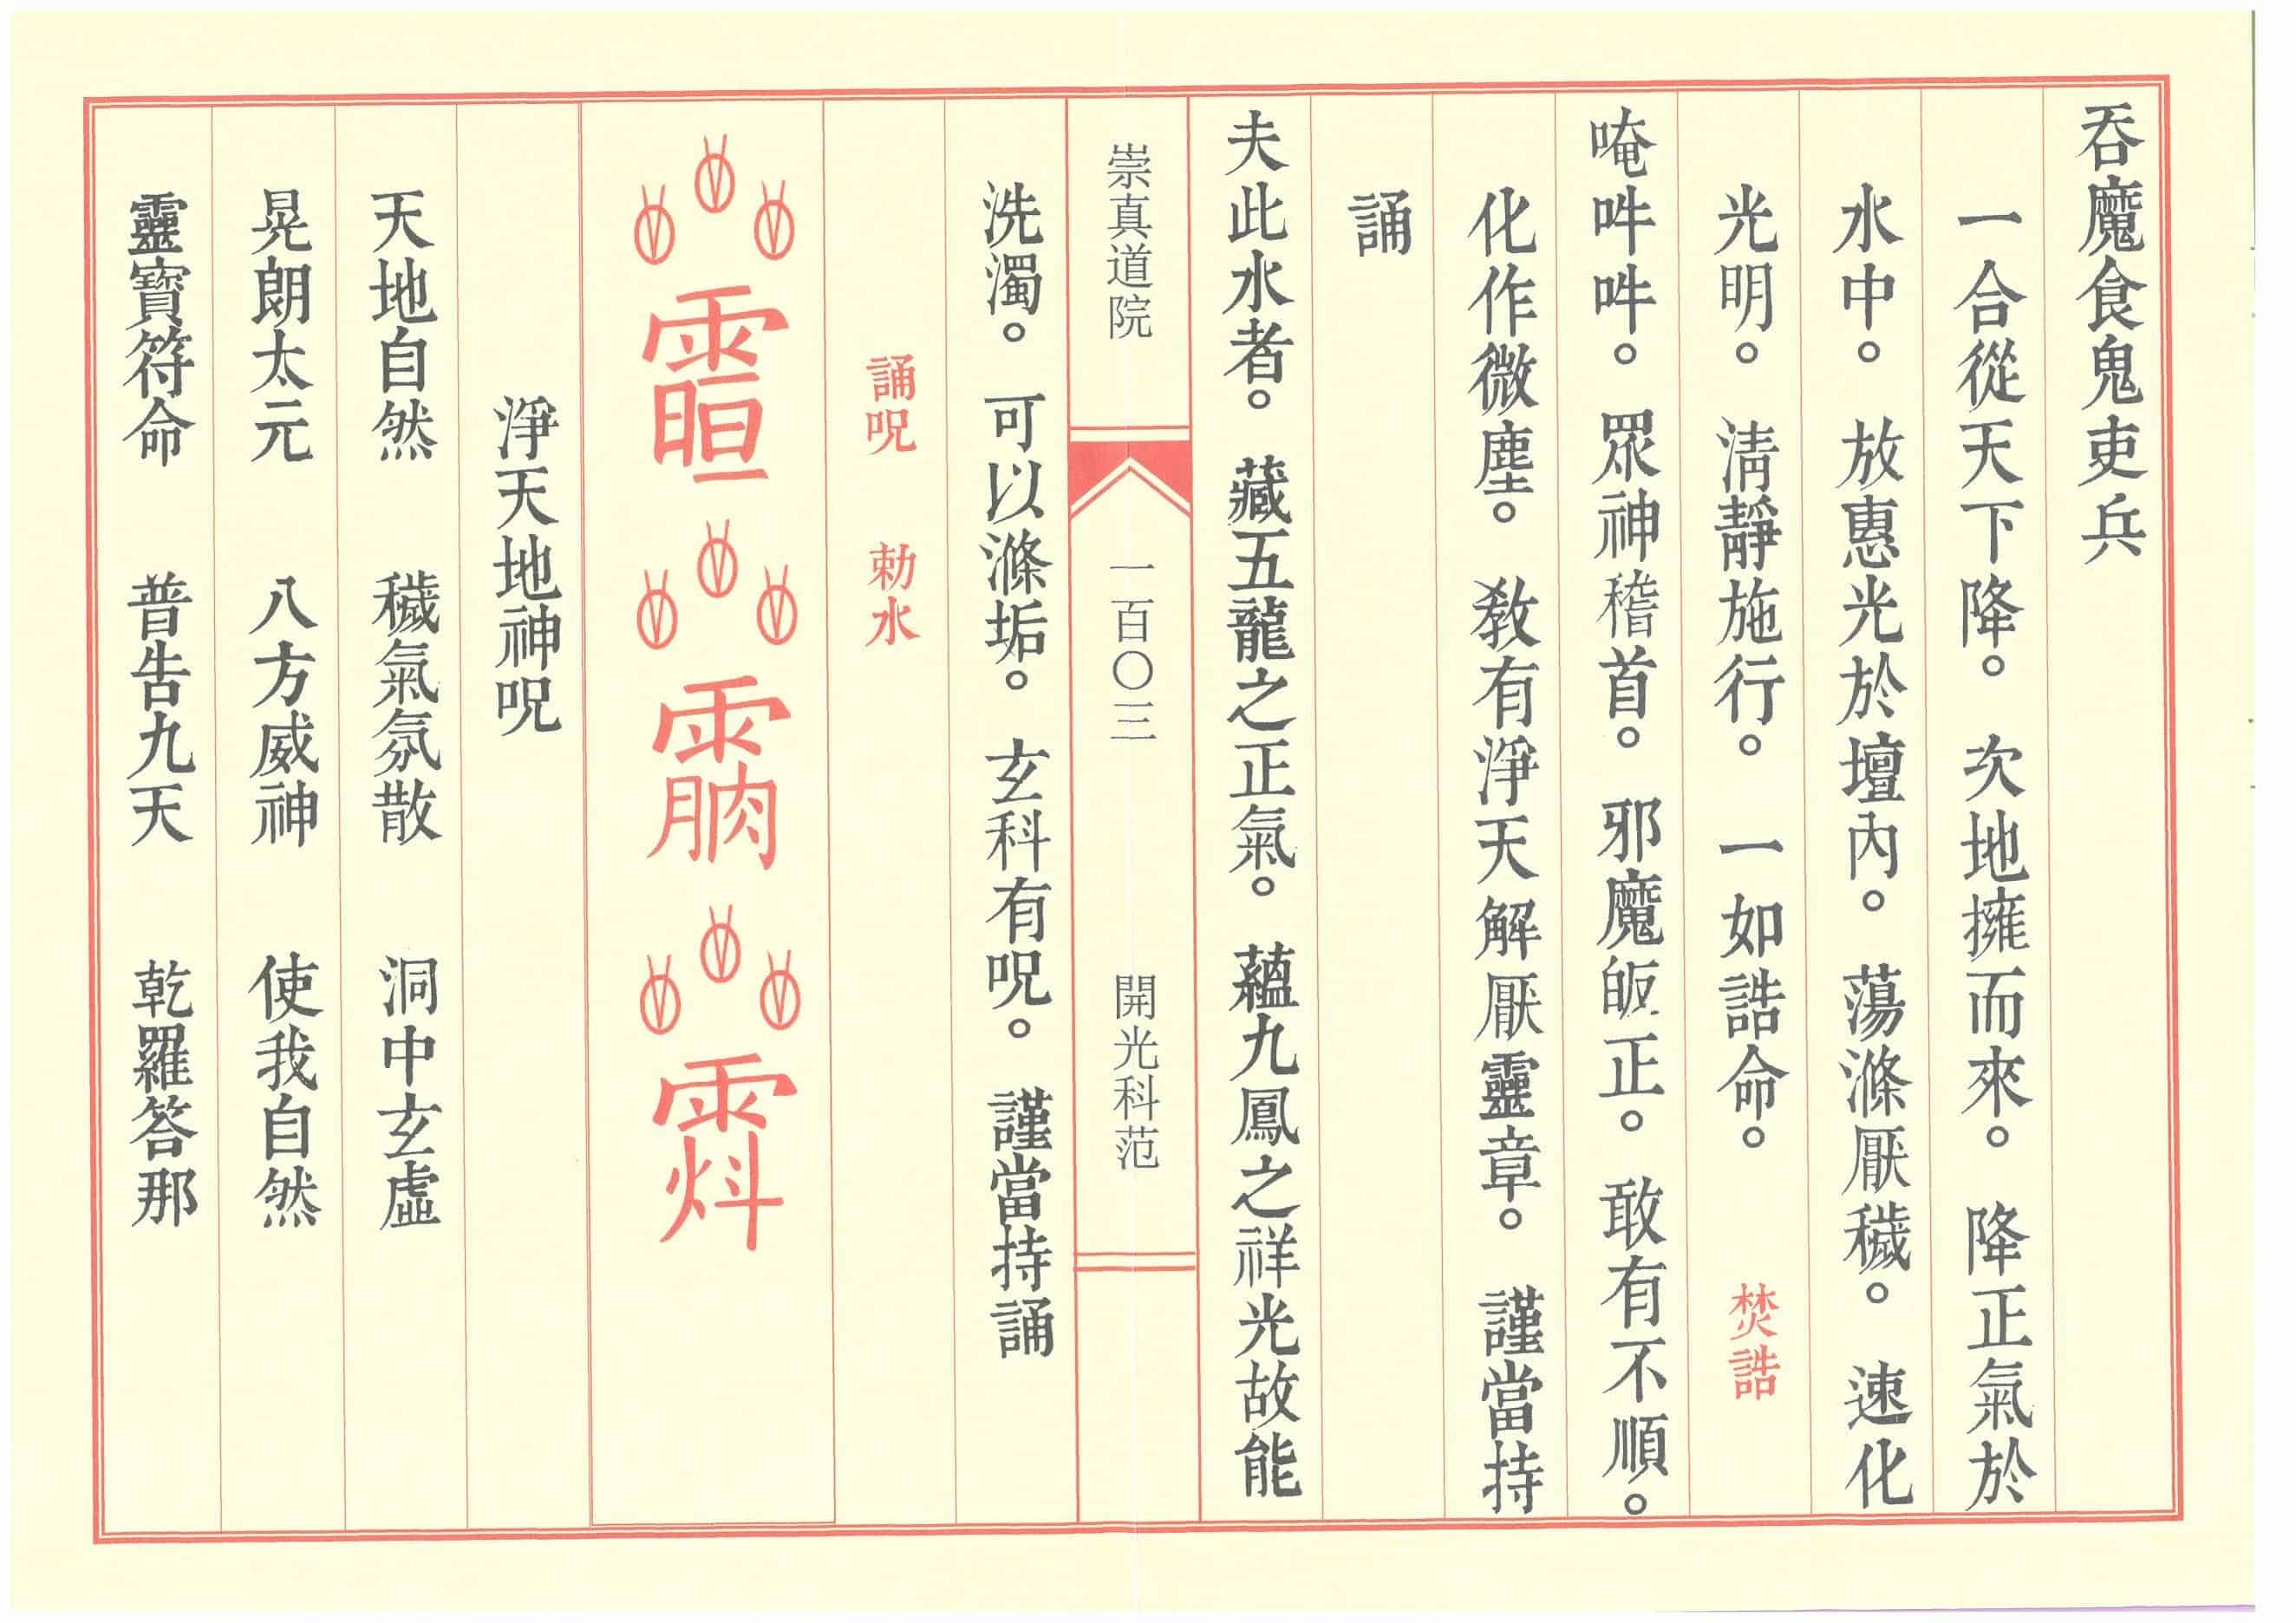 吞魔食鬼吏兵
一合從天下降。次地擁而來。降正氣於
水中。放惠光於壇內。蕩滌厭穢。速化
光明。清靜施行。一如誥命。焚誥
唵吽吽。眾神稽首。邪魔皈正。敢有不順。
化作微塵。教有淨天解厭靈章。謹當持
誦
夫此水者。藏五龍之正氣。蘊九鳳之祥光故能
崇真道院 一百〇三 開光科范
洗濁。可以滌垢。玄科有呪。謹當持誦
誦呪 勅水
淨天地神呪
天地自然 穢氣氛散 洞中玄虛
晃朗太元 八方威神 使我自然
靈寶符命 普告九天 乾羅答那